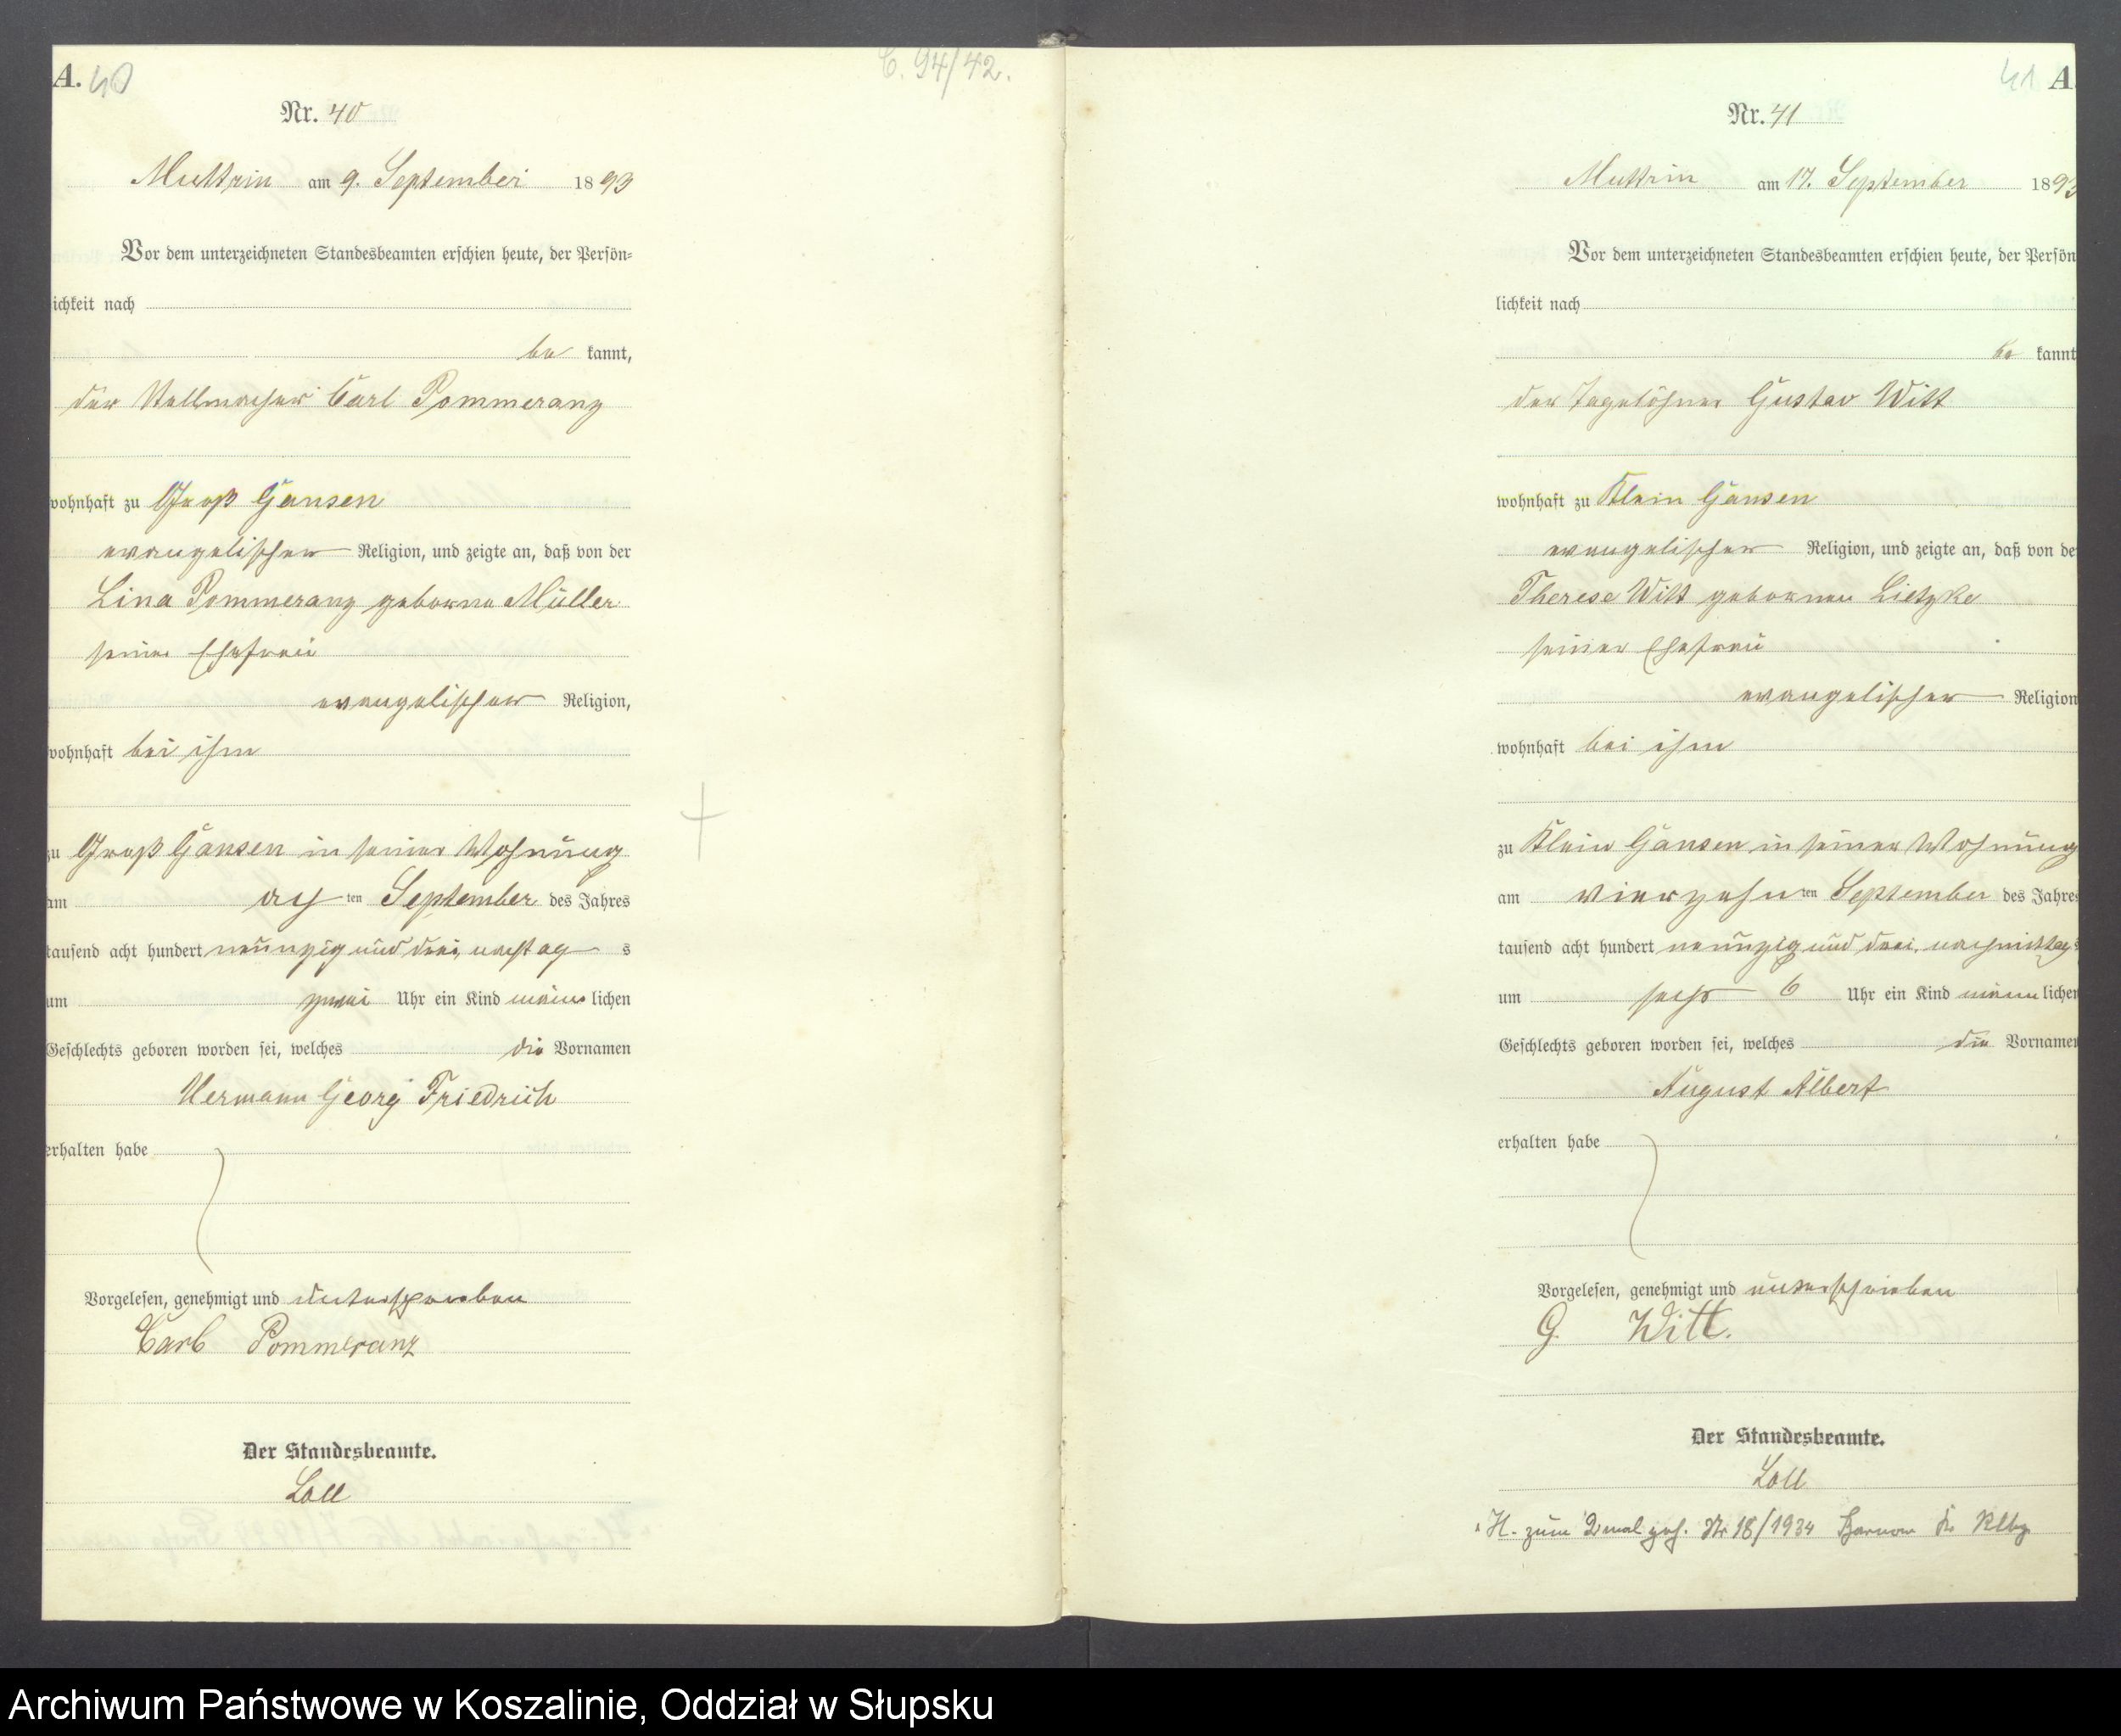 A. 40
C. 94/42.
Nr. 40
Muttrin am 9. September 1893
Vor dem unterzeichneten Standesbeamten erschien heute, der Persön-
lichkeit nach
be kannt,
der Stellmacher Carl Pommeranz
wohnhaft zu Groß Gansen
evangelischer Religion, und zeigte an, daß von der
Lina Pommeranz geborne Müller
seiner Ehefrau
evangelischer Religion,
wohnhaft bei ihm
zu Groß Gansen in seiner Wohnung
am ten September des Jahres
tausend acht hundert neunzig und drei, s
um zwei Uhr ein Kind männ lichen
Geschlechts geboren worden sei, welches die Vornamen
Hermann Georg Friedrich
erhalten habe
Vorgelesen, genehmigt und unterschrieben
Carl Pommeranz
Der Standesbeamte.
Loll
41 A.
Nr. 41
Muttrin am 17. September 1893
Vor dem unterzeichneten Standesbeamten erschien heute, der Persön
lichkeit nach
be kannt
der Tagelöhner Gustav Witt
wohnhaft zu Klein Gansen
evangelischer Religion, und zeigte an, daß von de
Therese Witt gebornen Lietzke
seiner Ehefrau
evangelischer Religion
wohnhaft bei ihm
zu Klein Gansen in seiner Wohnung
am vierzehn ten September des Jahres
tausend acht hundert neunzig und drei, nachmittag s
um sechs 6 Uhr ein Kind männ lichen
Geschlechts geboren worden sei, welches die Vornamen
August Albert
erhalten habe
Vorgelesen, genehmigt und unterschrieben
G. Witt.
Der Standesbeamte.
Loll
H. zum 2 mal geh. Nr 18/1934
Archiwum Państwowe w Koszalinie, Oddział w Słupsku